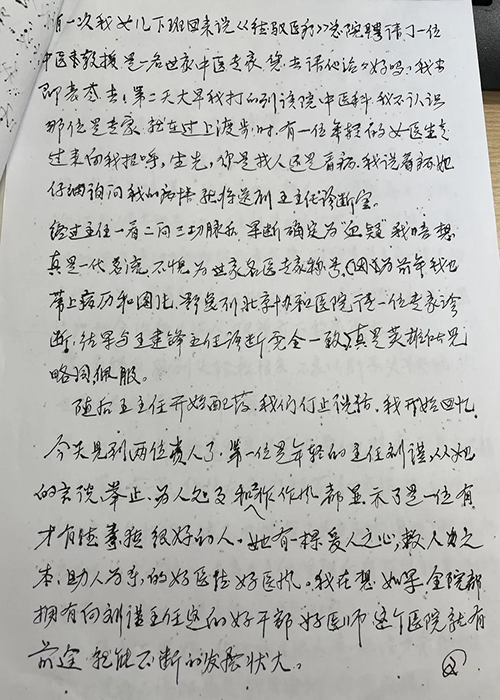 有一次我女儿下班回来说《《经驭医疗》》总院聘请了一位
中医李教授是一名世家中医专家您去请他治々好吗,我当
即表态去!第二天大早我打的到该院中医科,我不认识
那位是专家,就在过上渡步时,有一位年轻的女医生走
过来向我招呼,先生,你是找人还是看病,我说看病她
仔细询问我的病情她将送到王主任诊断室。
经过主任一看二问三切脉后,果断确定为"血疑"我暗想
真是一代名流,不愧为世家名医专家称号,(因)为前年我也
带上病历和图片,都复到北京协和医院请一位专家诊
断,结果与王建锋主任诊断完全一致,真是英雄所见
略同佩服。
随后王主任开始配药,我们停止说话,我开始回忆,
今天见到两位贵人了,第一位是年轻的主任刘谨,从她
的言谈、举止、为人处事和工作作风都显示了是一位有
才有德素极好的人,她有一棵爱人之心,救人为之
本,助人为乐,的好医德好医风。我在想如果全院都
拥有向刘谨主任这的好干部好医师这个医院就有
前途就能不断的发展状大。
②